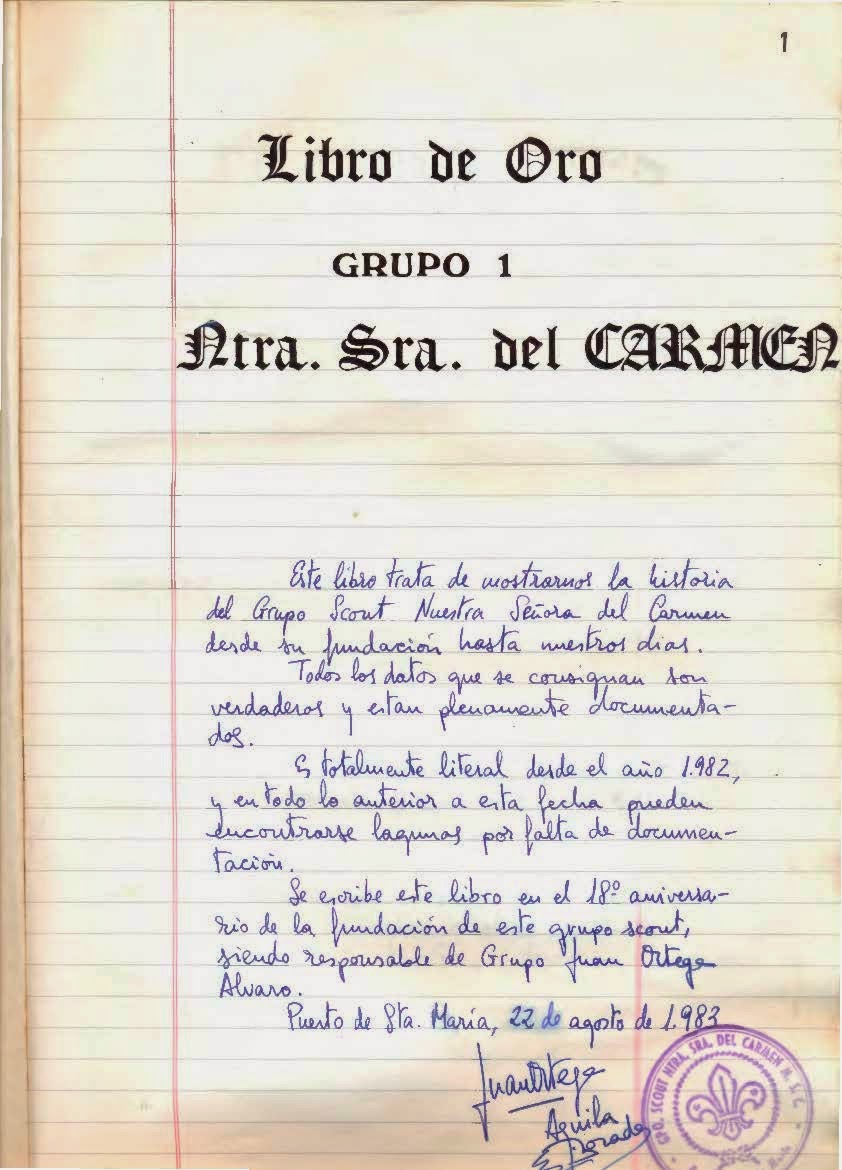 1
Libro de Oro
GRUPO 1
Ntra. Sra. del CARMEN
Este libro trata de mostrarnos la historia
del Grupo Scout Nuestra Señora del Carmen
desde su fundación hasta nuestros dias.
Todos los datos que se consignan son
verdaderos y estan plenamente documenta-
dos.
Es totalmente literal desde el año 1.982,
y en todo lo anterior a esta fecha pueden
encontrarse lagunas por falta de documen-
tación.
Se escribe este libro en el 18º aniversa-
rio de la fundación de este grupo scout,
siendo responsable de Grupo Juan Ortega
Alvaro.
Puerto de Sta. María, 22 de agosto de 1.983
Juan Ortega
Aguila
Dorada
GPO. SCOUT NTRA. SRA. DEL CARMEN M. S. C.